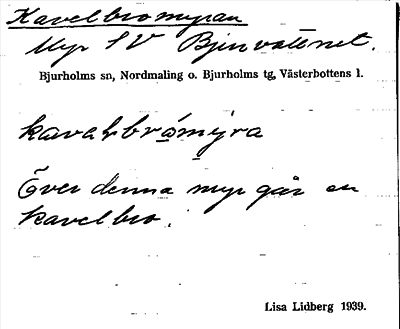 Kavelbromyran
Myr SV Bjurvattnet.
Bjurholms sn, Nordmaling o. Bjurholms tg, Västerbottens l.
kavəlbrómy̱ra
Över denna myr går en
kavelbro.
Lisa Lidberg 1939.